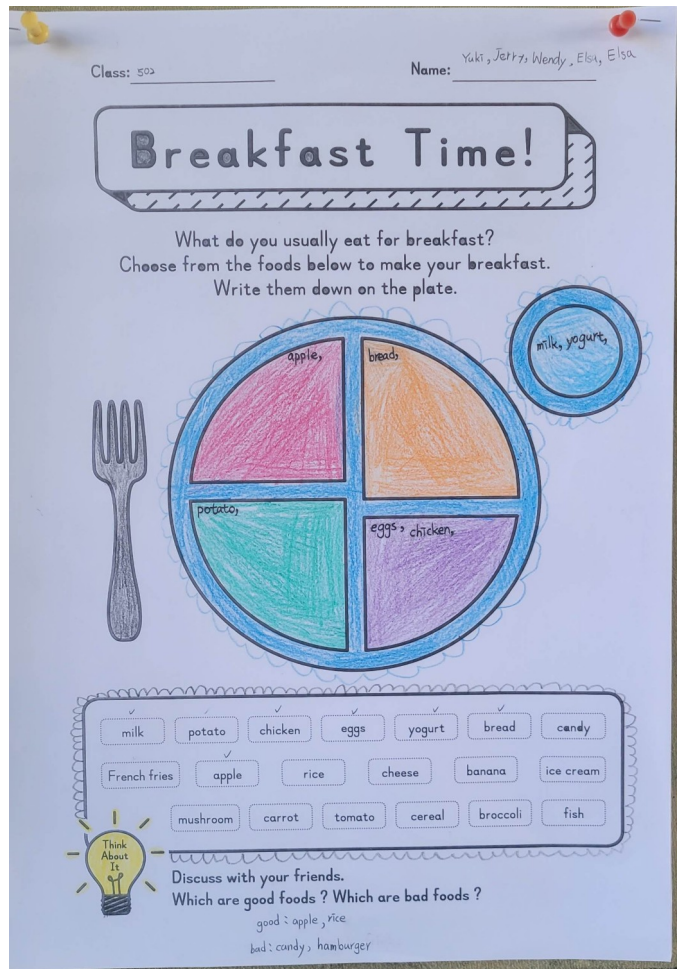 Class: 502
Name: Yuki, Jerry, Wendy, Elsa, Elsa
Breakfast Time!
What do you usually eat for breakfast?
Choose from the foods below to make your breakfast.
Write them down on the plate.
milk, yogurt,
apple,
bread,
potato,
eggs, chicken,
milk potato chicken eggs yogurt bread candy
French fries apple rice cheese banana ice cream
mushroom carrot tomato cereal broccoli fish
Think
About
It
Discuss with your friends.
Which are good foods ? Which are bad foods ?
good : apple, rice
bad : candy, hamburger